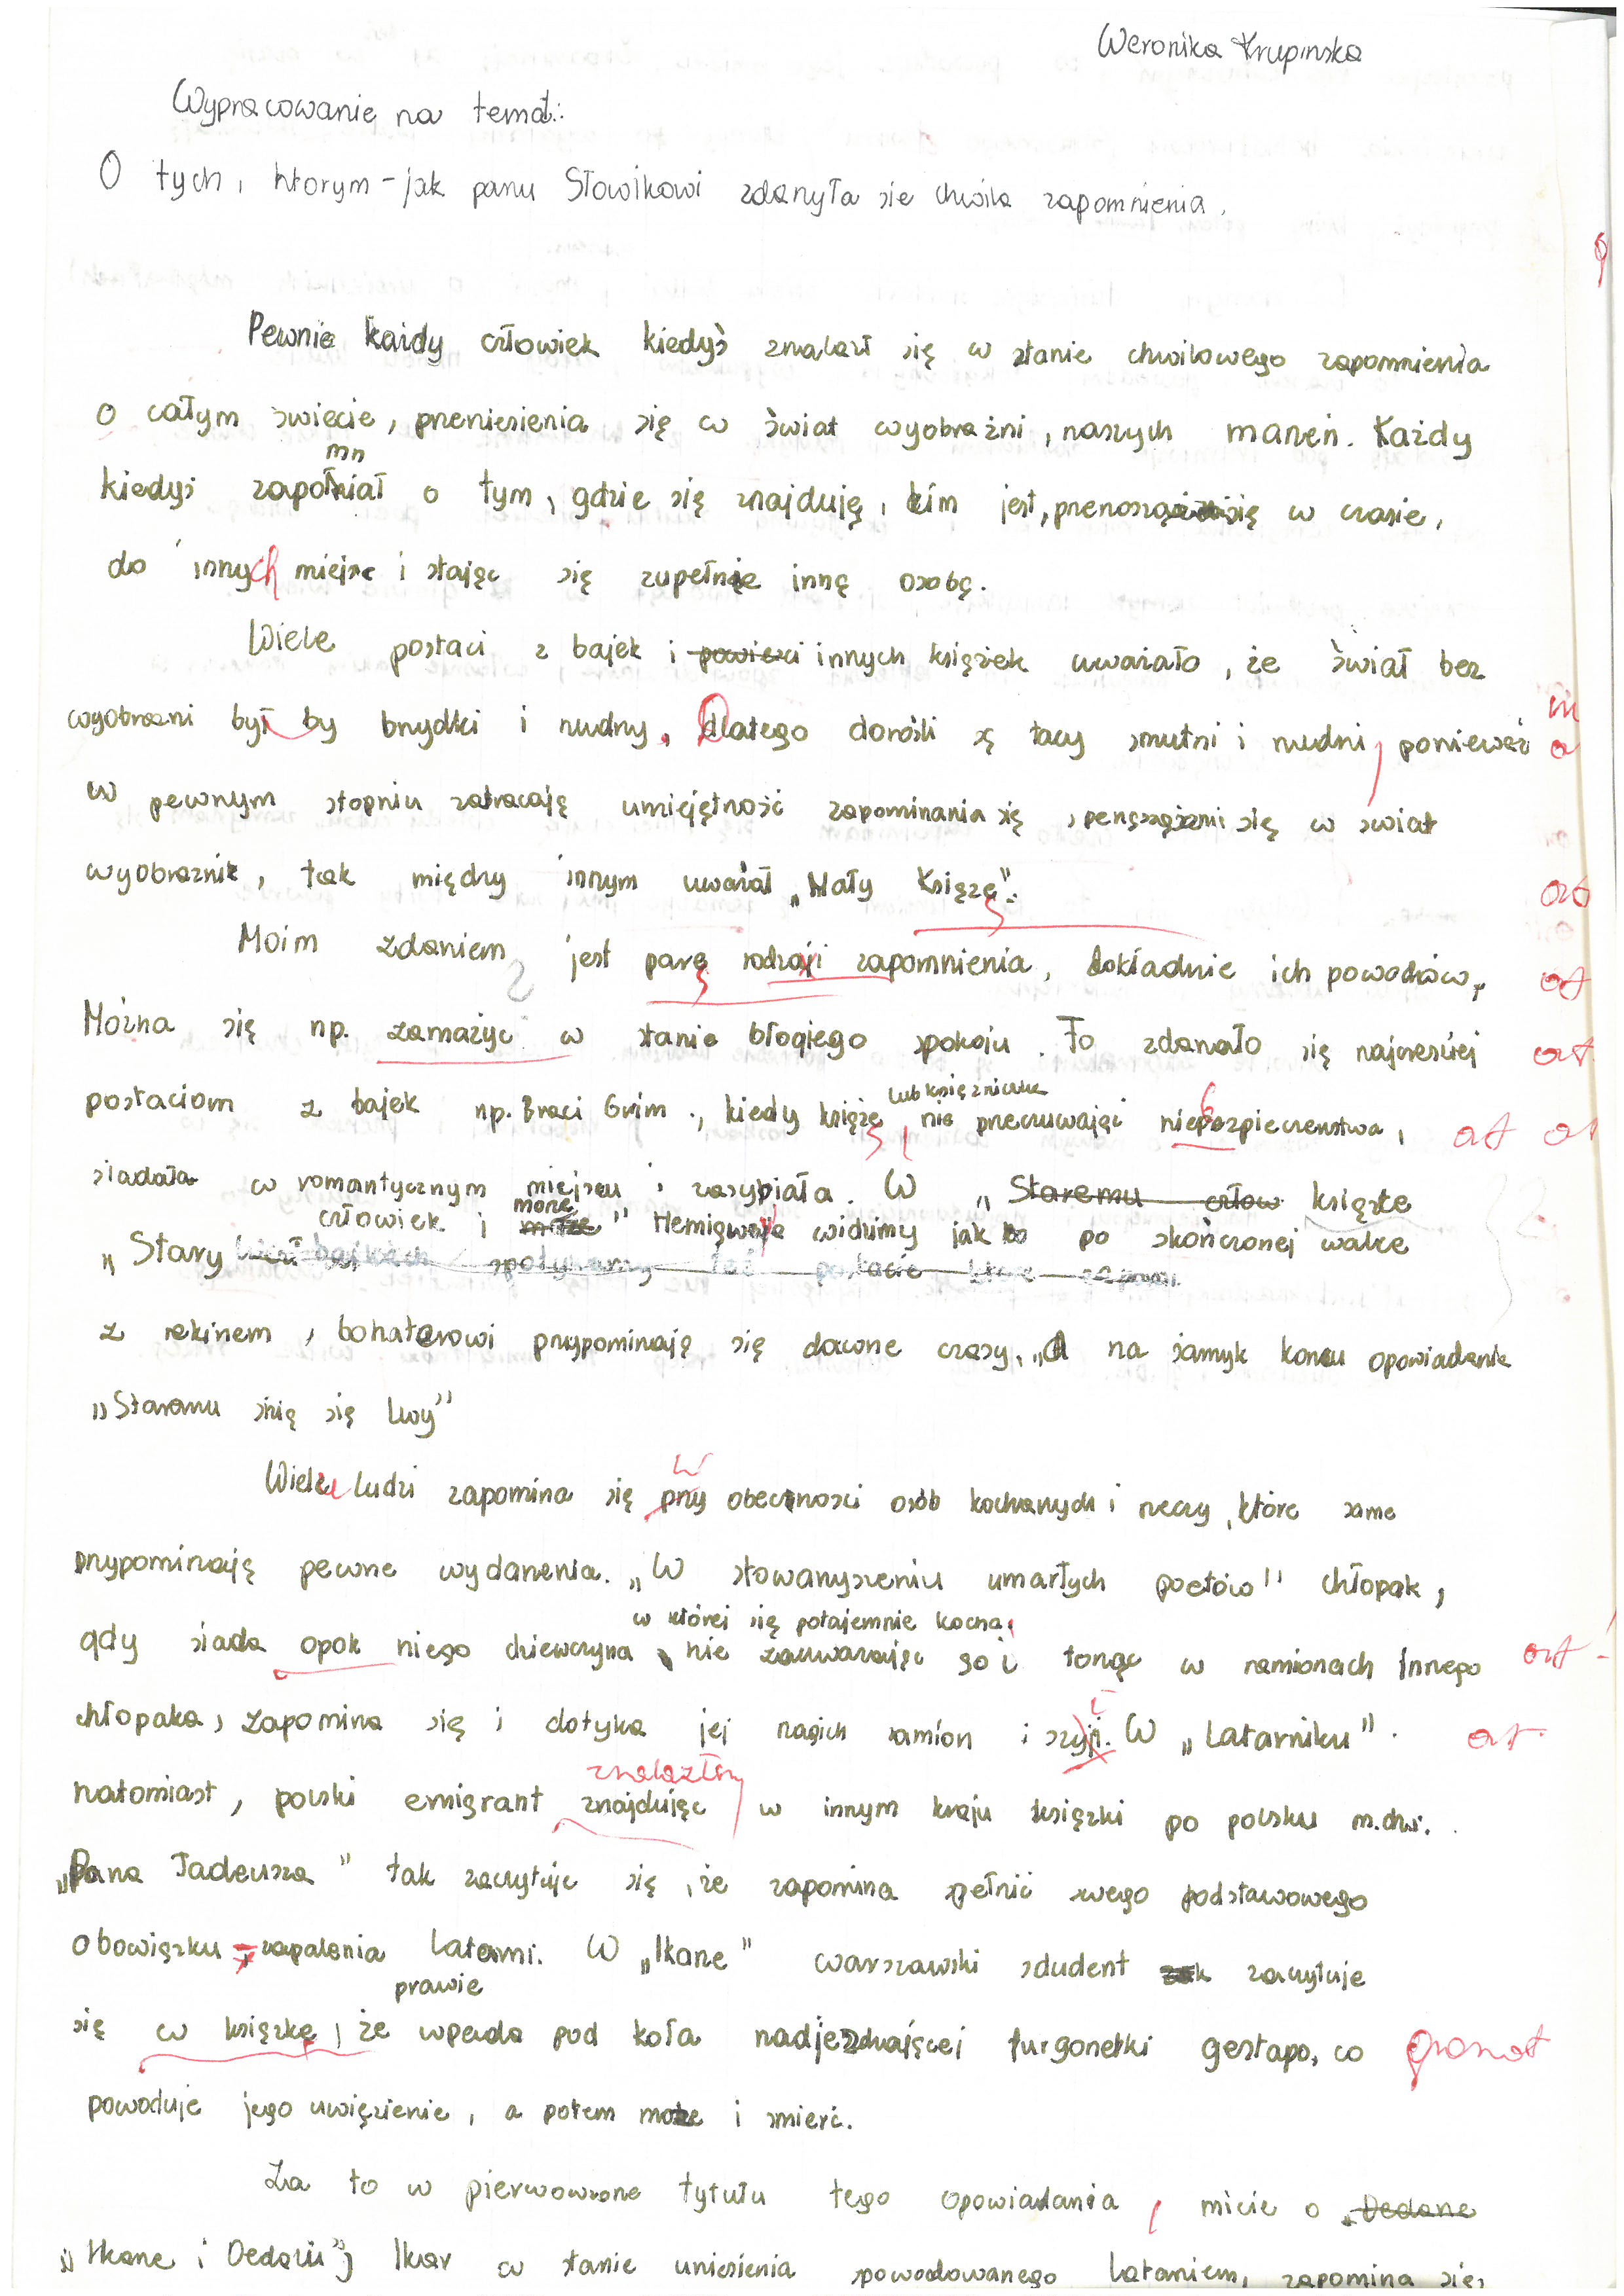 Weronika Krupinska
Wypracowanie na temat:
O tych, ktorym - jak panu Słowikowi zdarzyła sie chwila zapomnienia.
Pewnie każdy człowiek kiedyś znalazł się w stanie chwilowego zapomnienia
o całym świecie, przeniesienia się w świat wyobraźni, naszych marzeń. Każdy
mn
kiedyś zapomniał o tym, gdzie się znajduję, kim jest, przenosząc się w czasie,
do innych miejsc i stając się zupełnie inną osobą.
Wiele postaci z bajek i powiesci innych książek uważało, że świat bez
wyobrazni był by brzydki i nudny, dlatego dorośli są tacy smutni i nudni, ponieważ
w pewnym stopniu zatracają umiejętność zapominania się, się w swiat
wyobraznie, tak między innym uważał „Mały Książę".
ort
Moim zdaniem jest parę rodzaji zapomnienia, dokładnie ich powodów,
ort
Można się np. zamażyć w stanie błogiego spokoju. To zdarzało się najcześciej
ort
lub księżniczka
postaciom z bajek np. Braci Grim., kiedy książę nie przeczuwając niebezpieczenstwa,
ort ort
siadała w romantycznym miejscu i zasypiała. W „Staremu człow książce
człowiek i morze
„Stary " Hemigwaya widzimy jak to po skończonej walce
spotykamy też postacie które
z rekinem, bohaterowi przypominają się dawne czasy, „A na samyk koncu opowiadania
„Staremu śnią się lwy"
w
Wiele ludzi zapomina się przy obecnosci osób kochanych i rzeczy, które same
przypominają pewne wydarzenia. „W stowarzyszeniu umarłych poetów" chłopak,
w której się potajemnie kocha,
gdy siada opok niego dziewczyna nie zauwarzając go i tonąc w ramionach innego
ort
chłopaka, zapomina się i dotyka jej nagich ramion i szyji. W „Latarniku"
ort
znalazłszy
natomiast, polski emigrant znajdując w innym kraju książki po polsku m.in.
„Pana Tadeusza" tak zaczytuje się, że zapomina spełnić swego podstawowego
obowiązku - zapalenia latarni. W „Ikarze" warszawski sdudent zaczytuje
prawie
się w książkę, że wpada pod koła nadjezdzającej furgonetki gestapo, co
gramat
powoduje jego uwięzienie, a potem może i smierć.
Za to w pierwowzorze tytułu tego opowiadania, micie o „Dedalze
„Ikarze i Dedalu", Ikar w stanie uniesienia spowodowanego lataniem, zapomina się,